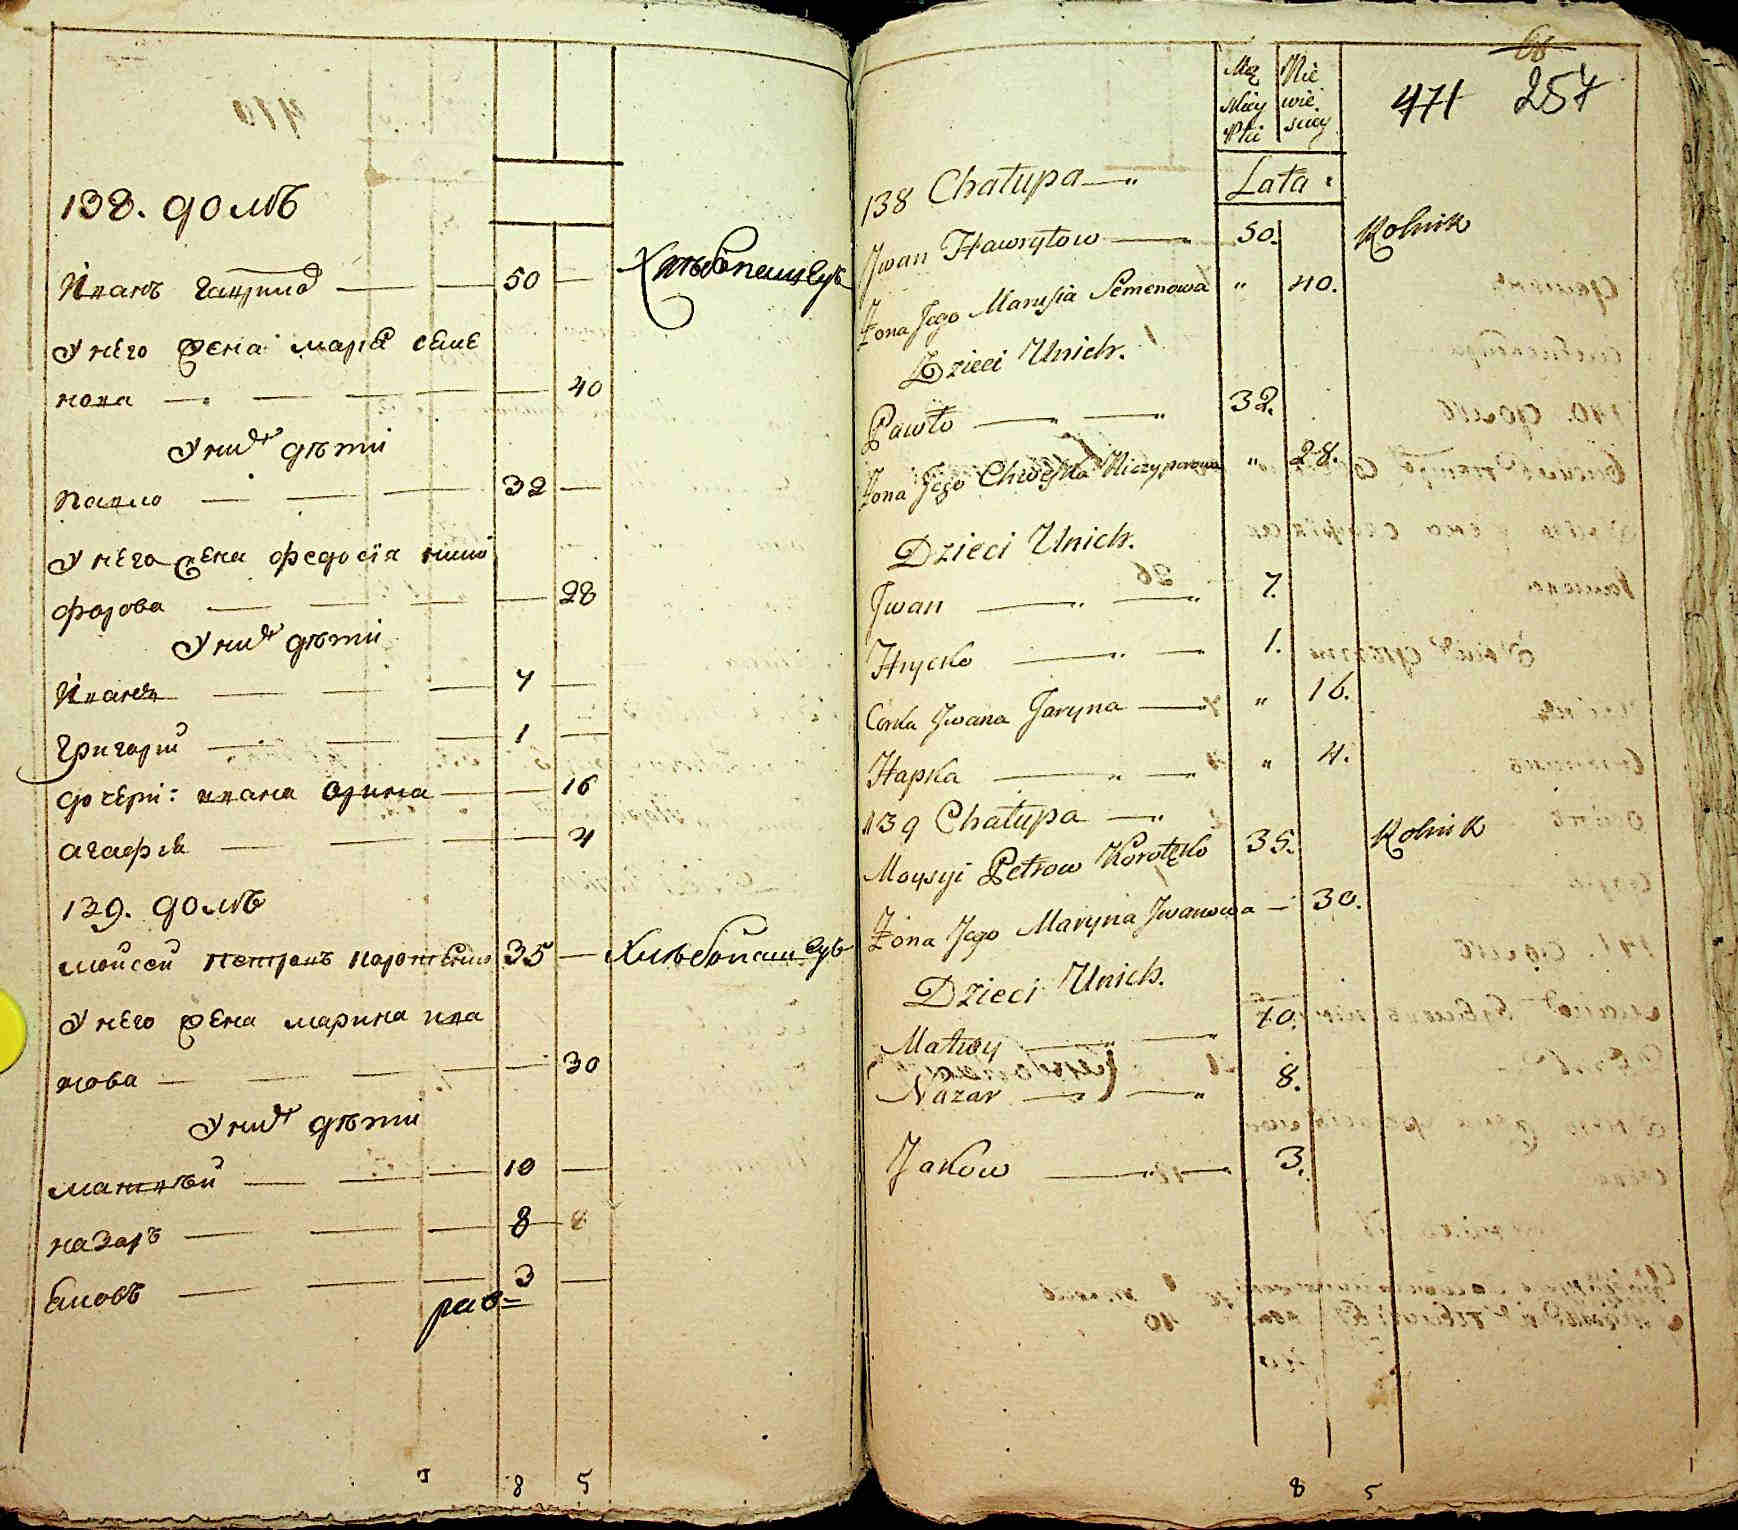 138. домъ
Иванъ Гаврило — — 50 — Хлѣбопашецъ
У него жена марія семе
нова — — — — — 40
У них дѣти
павло — — — 32 —
У него жена федосія ничи
форова — — — — 28
У них дѣти
Иванъ — — — 7 —
Григорій — — — 1 —
дочери: ивана орина — — 16
агафія — — — — 4
139. домъ
моисей петровъ коротенко 35 — Хлѣбопашецъ
У него жена марина ива
нова — — — — — 30
У них дѣти
матвѣй — — — 10 —
назаръ — — — 8 — 8
яковъ — — — 3 —
8 5
68
Mę Nie
skiey wie
Płci sciey
471 257
138 Chałupa — Lata
Jwan Hawryłow — 50. Rolnik
Żona Jego Marusia Semenowa " 40.
Dzieci Unich.
Pawło — — 32.
Żona Jego Chweśka Niczyporowa " 28.
Dzieci Unich.
Jwan — — 7.
Hrycko — — 1.
Corka Jwana Jaryna — " 16.
Hapka — — " 4.
139 Chałupa —
Moysyi Petrow Korotęko 35. Rolnik
Żona Jego Maryna Jwanowa — 30.
Dzieci Unich.
Matwey — — 10.
Nazar — — 8.
Jakow — — 3.
8 5